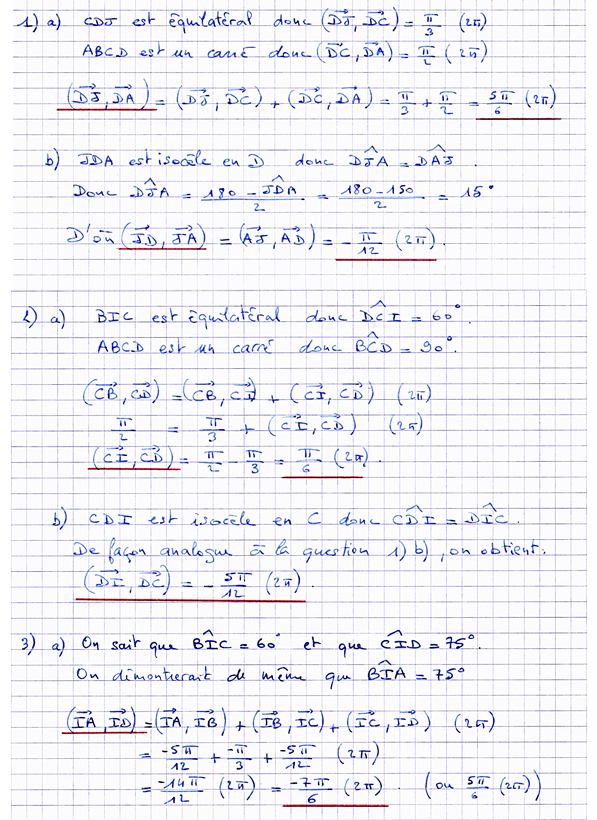 1) a) CDJ est équilatéral donc (DJ→, DC→) = π/3 (2π)
ABCD est un carré donc (DC→, DA→) = π/2 (2π)
(DJ→, DA→) = (DJ→, DC→) + (DC→, DA→) = π/3 + π/2 = 5π/6 (2π)
b) JDA est isocèle en D donc DĴA = DÂJ.
Donc DĴA = (180 - JD̂A)/2 = (180 - 150)/2 = 15°
D'où (JD→, JA→) = (AJ→, AD→) = - π/12 (2π).
2) a) BIC est équilatéral donc DĈI = 60°.
ABCD est un carré donc BĈD = 90°.
(CB→, CD→) = (CB→, CI→) + (CI→, CD→) (2π)
π/2 = π/3 + (CI→, CD→) (2π)
(CI→, CD→) = π/2 - π/3 = π/6 (2π).
b) CDI est isocèle en C donc CD̂I = DÎC.
De façon analogue à la question 1) b), on obtient:
(DI→, DC→) = - 5π/12 (2π).
3) a) On sait que BÎC = 60° et que CÎD = 75°.
On démontrerait de même que BÎA = 75°
(IA→, ID→) = (IA→, IB→) + (IB→, IC→) + (IC→, ID→) (2π)
= -5π/12 + -π/3 + -5π/12 (2π)
= -14π/12 (2π) = -7π/6 (2π). (ou 5π/6 (2π))